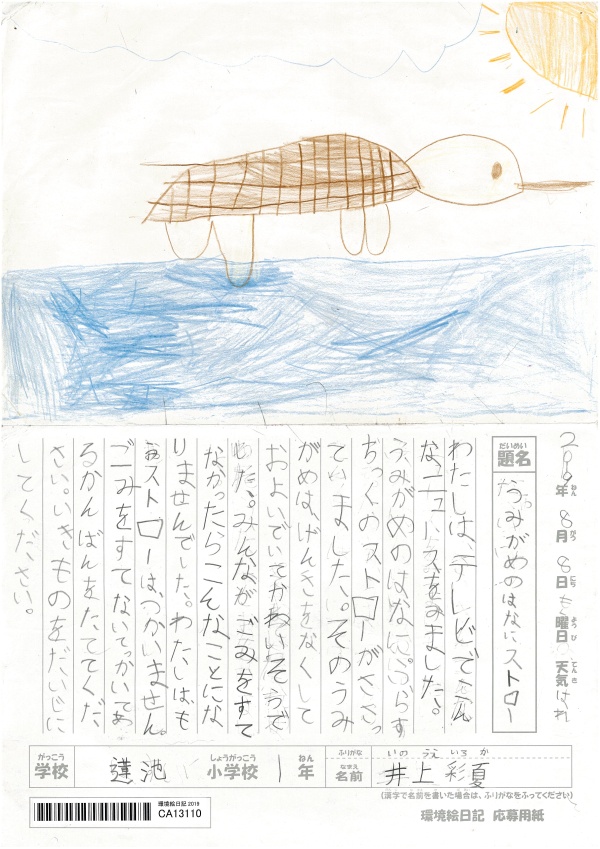 2019年8月8日も曜日 天気はれ
ねん がつ にち ようび てんき
だいめい
題名 うみがめのはなにストロー
わたしは、テレビでこん
なニュースをみました。
うみがめのはなにぷらす
ちっくのストローがささっ
ていました。そのうみ
がめは、げんきをなくして
およいでいてかわいそうで
した。みんながごみをすて
なかったらこんなことにな
りませんでした。わたしはも
うストローは、つかいません。
ごみをすてないでっかいてあ
るかんばんをたててくだ
さい。いきものをだいじに
してください。
がっこう しょうがっこう ねん ふりがな いのうえ いろか
学校 蓮池 小学校 1年 なまえ 名前 井上 彩夏
(漢字で名前を書いた場合は、ふりがなをふってください)
環境絵日記 2019
CA13110
環境絵日記 応募用紙